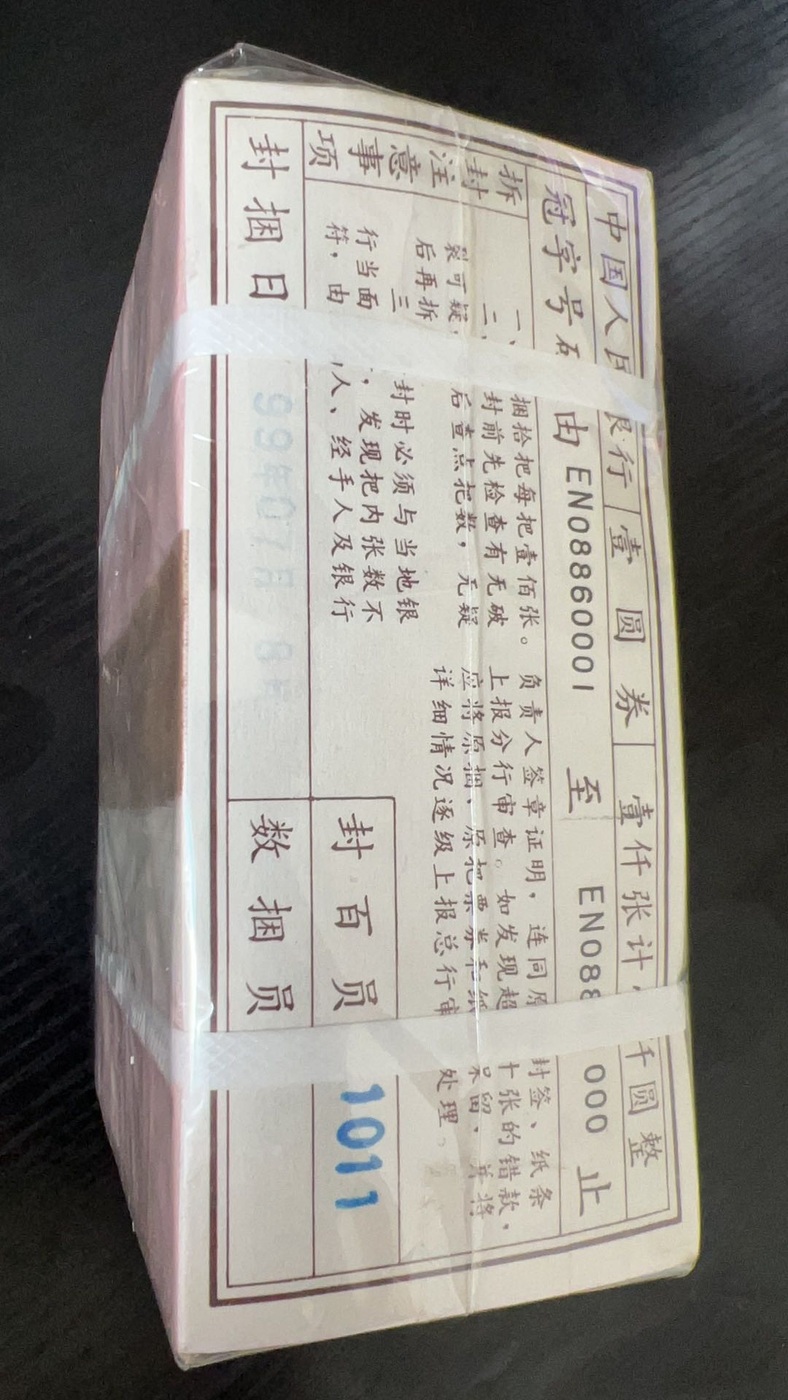 中国人民银行 壹圆券 壹仟张计 仟圆整
冠字号码 由 EN08860001 至 EN088 000 止
拆封注意事项
一、 捆拾把每把壹佰张。
二、 封前先检查有无破
裂可疑, 后查点把数,无疑
后再拆
三 封时必须与当地银
行当面 ,发现把内张数不
符,由 人、经手人及银行
负责人签章证明,连同原 封签、纸条
上报分行审查。如发现超 十张的错款,
应将原捆、原把票券和纸 保留,并将
详细情况逐级上报总行审 处理。
封百员 1011
封捆日 99年07月 8日 数捆员